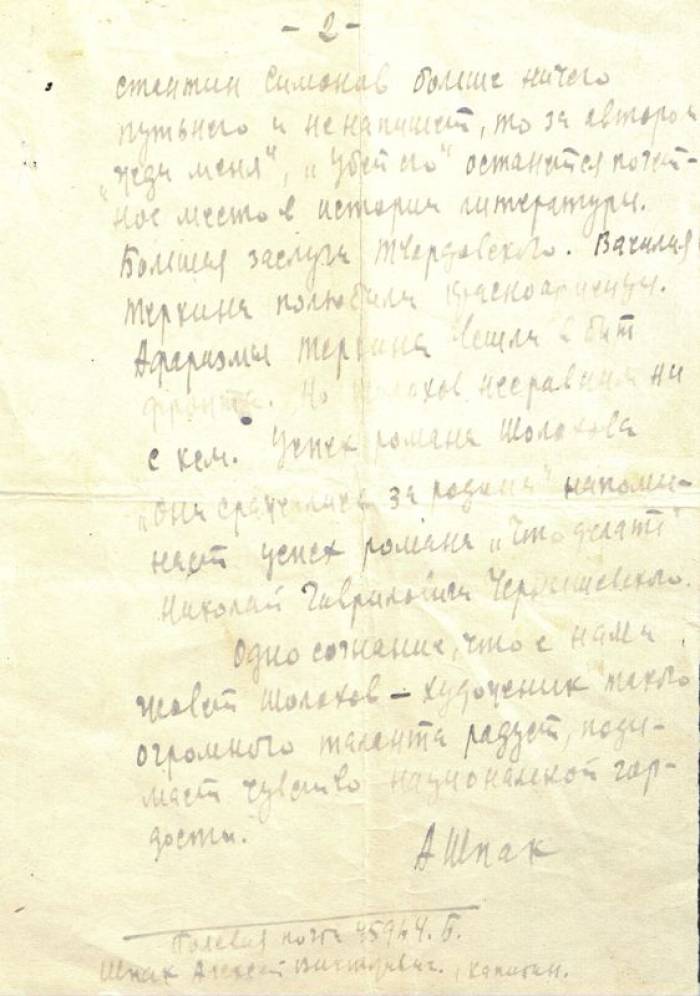 - 2 -
стантин Симонов больше ничего
путьнего и не напишет, то за автором
"Жди меня", "Убей его" останется почет-
ное место в истории литературы.
Большая заслуга Твардовского. Василия
Теркина полюбили красноармейцы.
Афоризмы Теркина вошли в быт
фронта. Но Шолохов несравним ни
с кем. Успех романа Шолохова
"Они сражались за родину" напоми-
нает успех романа "Что делать"
Николай Гавриловича Чернышевского.
Одно сознание, что с нами
живет Шолохов – художник такого
огромного таланта радует, подн-
мает чувство национальной гор-
дости.
АШпак
Полевая почта 45964. Б.
Шпак Алексей Викторович., капитан.